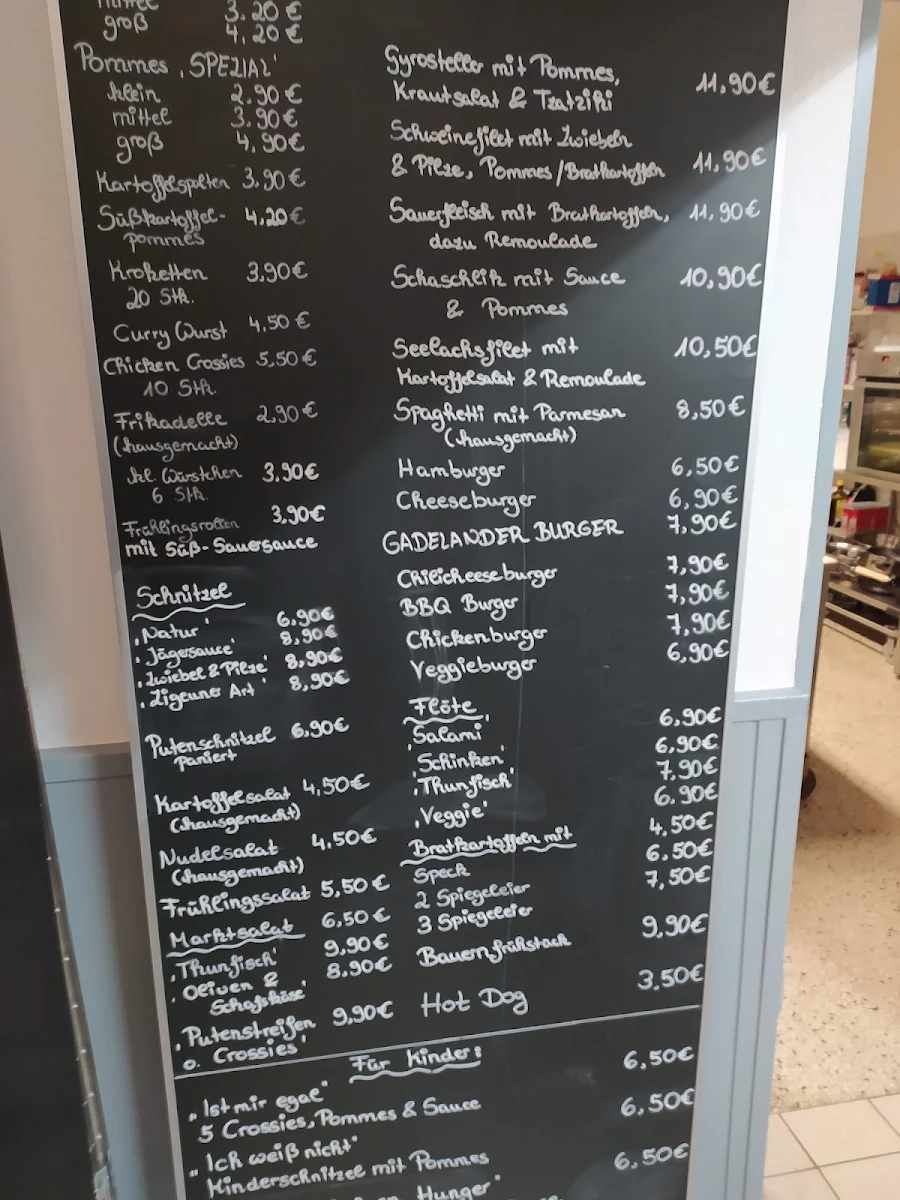 mittel 3.20€
groß 4,20€
Pommes ‚SPEZIAL'
klein 2.90€
mittel 3.90€
groß 4,90€
Kartoffelspalten 3.90€
Süßkartoffel- 4,20€
pommes
Kroketten 3,90€
20 Stk.
Curry Wurst 4,50€
Chicken Crossies 5,50€
10 Stk
Frikadelle 2,90€
(hausgemacht)
kl. Würstchen 3,90€
6 Stk.
Frühlingsrollen 3,90€
mit Süß-Sauersauce
Schnitzel
‚Natur' 6,90€
‚Jägersauce' 8,90€
‚Zwiebel & Pilze' 8,90€
‚Zigeuner Art' 8,90€
Putenschnitzel 6,90€
paniert
Kartoffelsalat 4,50€
(hausgemacht)
Nudelsalat 4,50€
(hausgemacht)
Frühlingssalat 5,50€
Marktsalat 6,50€
‚Thunfisch' 9,90€
‚Oliven & 8,90€
Schafskäse'
‚Putenstreifen 9,90€
o. Crossies'
Gyrosteller mit Pommes,
Krautsalat & Tzatziki 11,90€
Schweinefilet mit Zwiebeln
& Pilze, Pommes/Bratkartoffeln 11,90€
Sauerfleisch mit Bratkartoffeln, 11,90€
dazu Remoulade
Schaschlik mit Sauce 10,90€
& Pommes
Seelachsfilet mit 10,50€
Kartoffelsalat & Remoulade
Spaghetti mit Parmesan 8,50€
(hausgemacht)
Hamburger 6,50€
Cheeseburger 6,90€
GADELANDER BURGER 7,90€
Chilicheeseburger 7,90€
BBQ Burger 7,90€
Chickenburger 7,90€
Veggieburger 6,90€
Flöte
‚Salami' 6,90€
‚Schinken' 6,90€
‚Thunfisch' 7,90€
‚Veggie' 6.90€
Bratkartoffeln mit
Speck 4,50€
2 Spiegeleier 6.50€
3 Spiegeleier 7,50€
Bauernfrühstück 9,90€
Hot Dog 3.50€
Für Kinder:
„Ist mir egal" 6,50€
5 Crossies, Pommes & Sauce
„Ich weiß nicht" 6,50€
Kinderschnitzel mit Pommes
Hunger" 6,50€